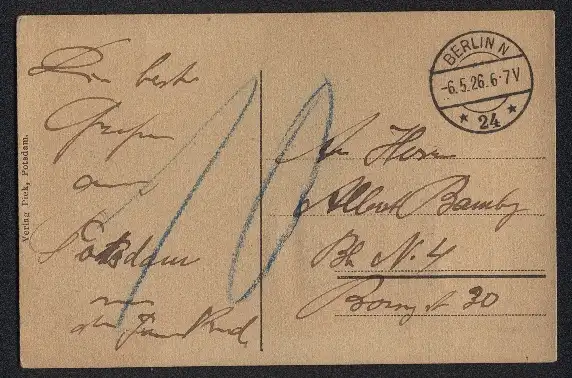 BERLIN N
-6.5.26.6-7V
* 24 *
Die beste
Grüße
aus
Potsdam
10
An Herrn
Albert Bamby
Bln N. 4
Borsig st 30
Verlag Pick, Potsdam.